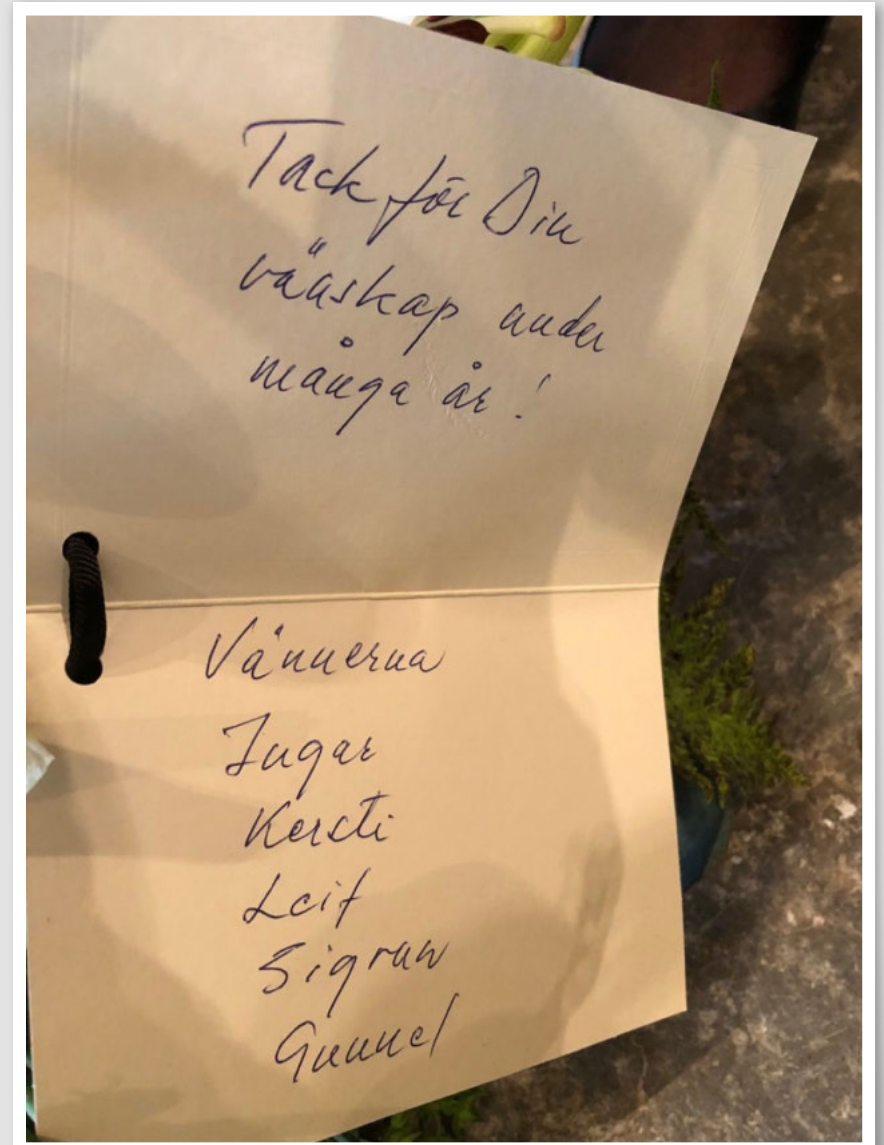 Tack för Din
vänskap under
många år!
Vännerna
Ingar
Kersti
Leif
Sigrun
Gunnel